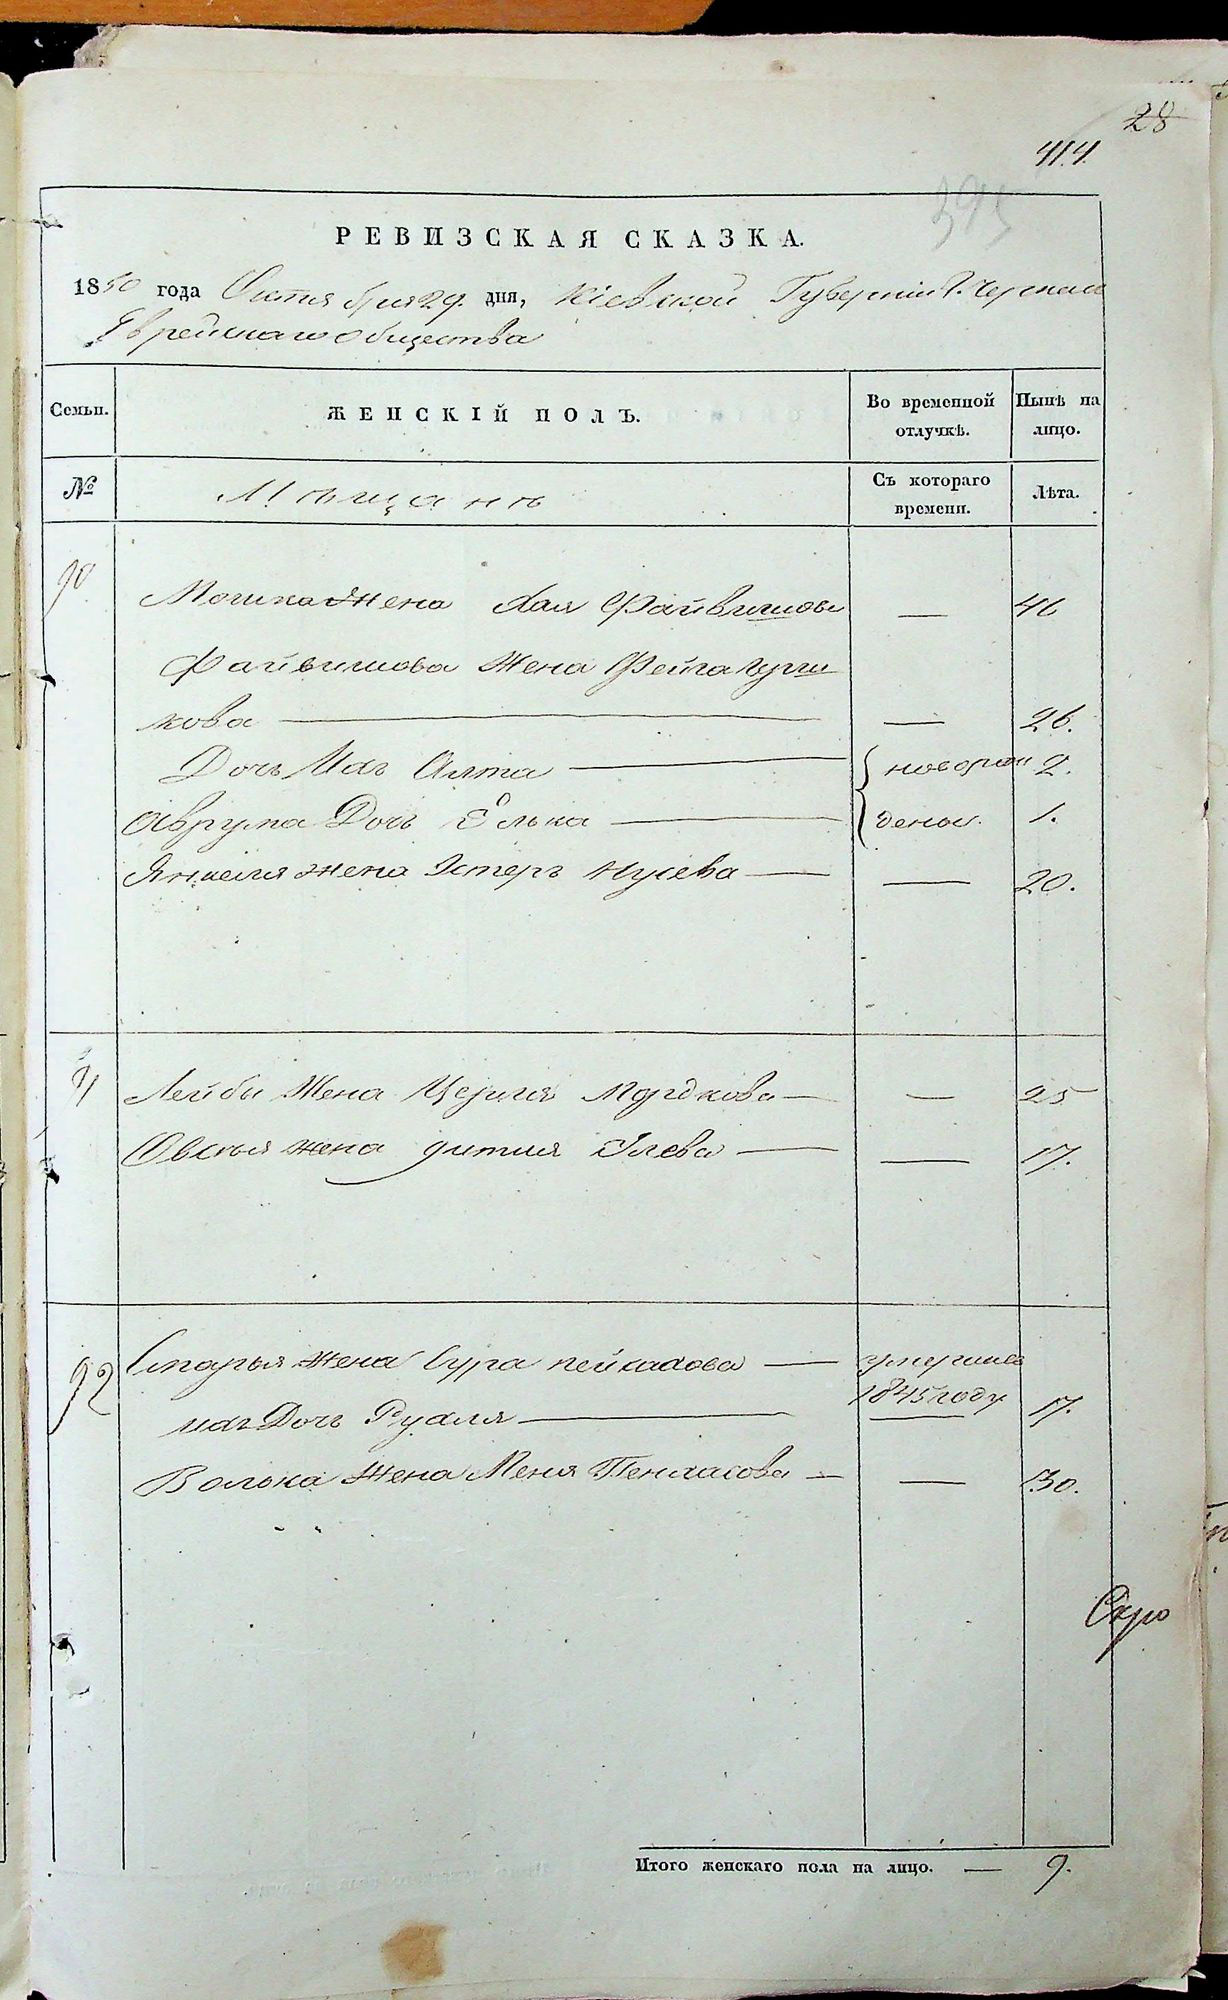 28
414.
395
РЕВИЗСКАЯ СКАЗКА.
1850 года Октября 29. дня, Кіевской Губерніи Г. Черкас
Еврейскаго общества
Семьи. ЖЕНСКІЙ ПОЛЪ. Во временной отлучкѣ. Нынѣ на лицо.
№ Мѣщанъ Съ котораго времени. Лѣта.
90. Мошка Жена Хая Файвишова — 46
Файвишова Жена Фейга
кова — — 26.
Дочь Ихъ Алта — новорож 2.
Аврума Дочь Элька — дены. 1.
Янкеля жена Эстеръ Нусева — — 20.
91 Лейбы Жена Мордкова — — 25
Овсѣя жена — — 17.
92 Жена Сура — умершая
1845 году
ихъ Дочь Рухля — — 17.
Волька Жена Меня Пенхасова — — 30.
Скро
Итого женскаго пола на лицо. — 9.